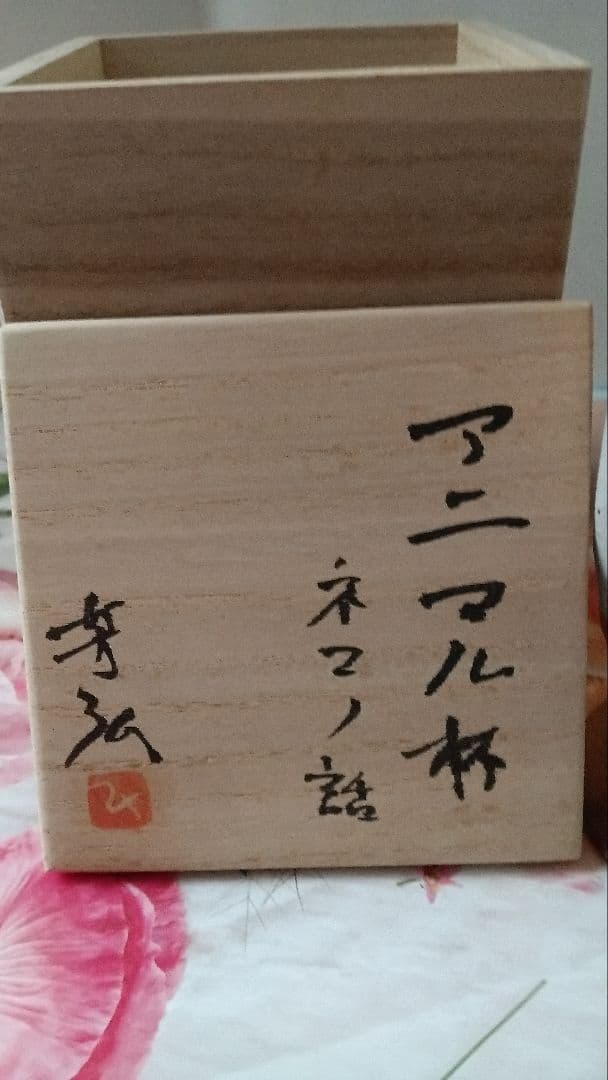 アニマル杯
ネコノ話
芳弘